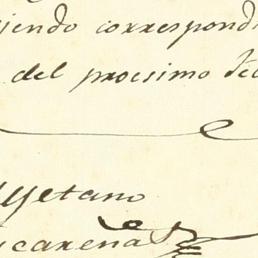 iendo correspondi
del procsimo Fe
Cayetano
carena